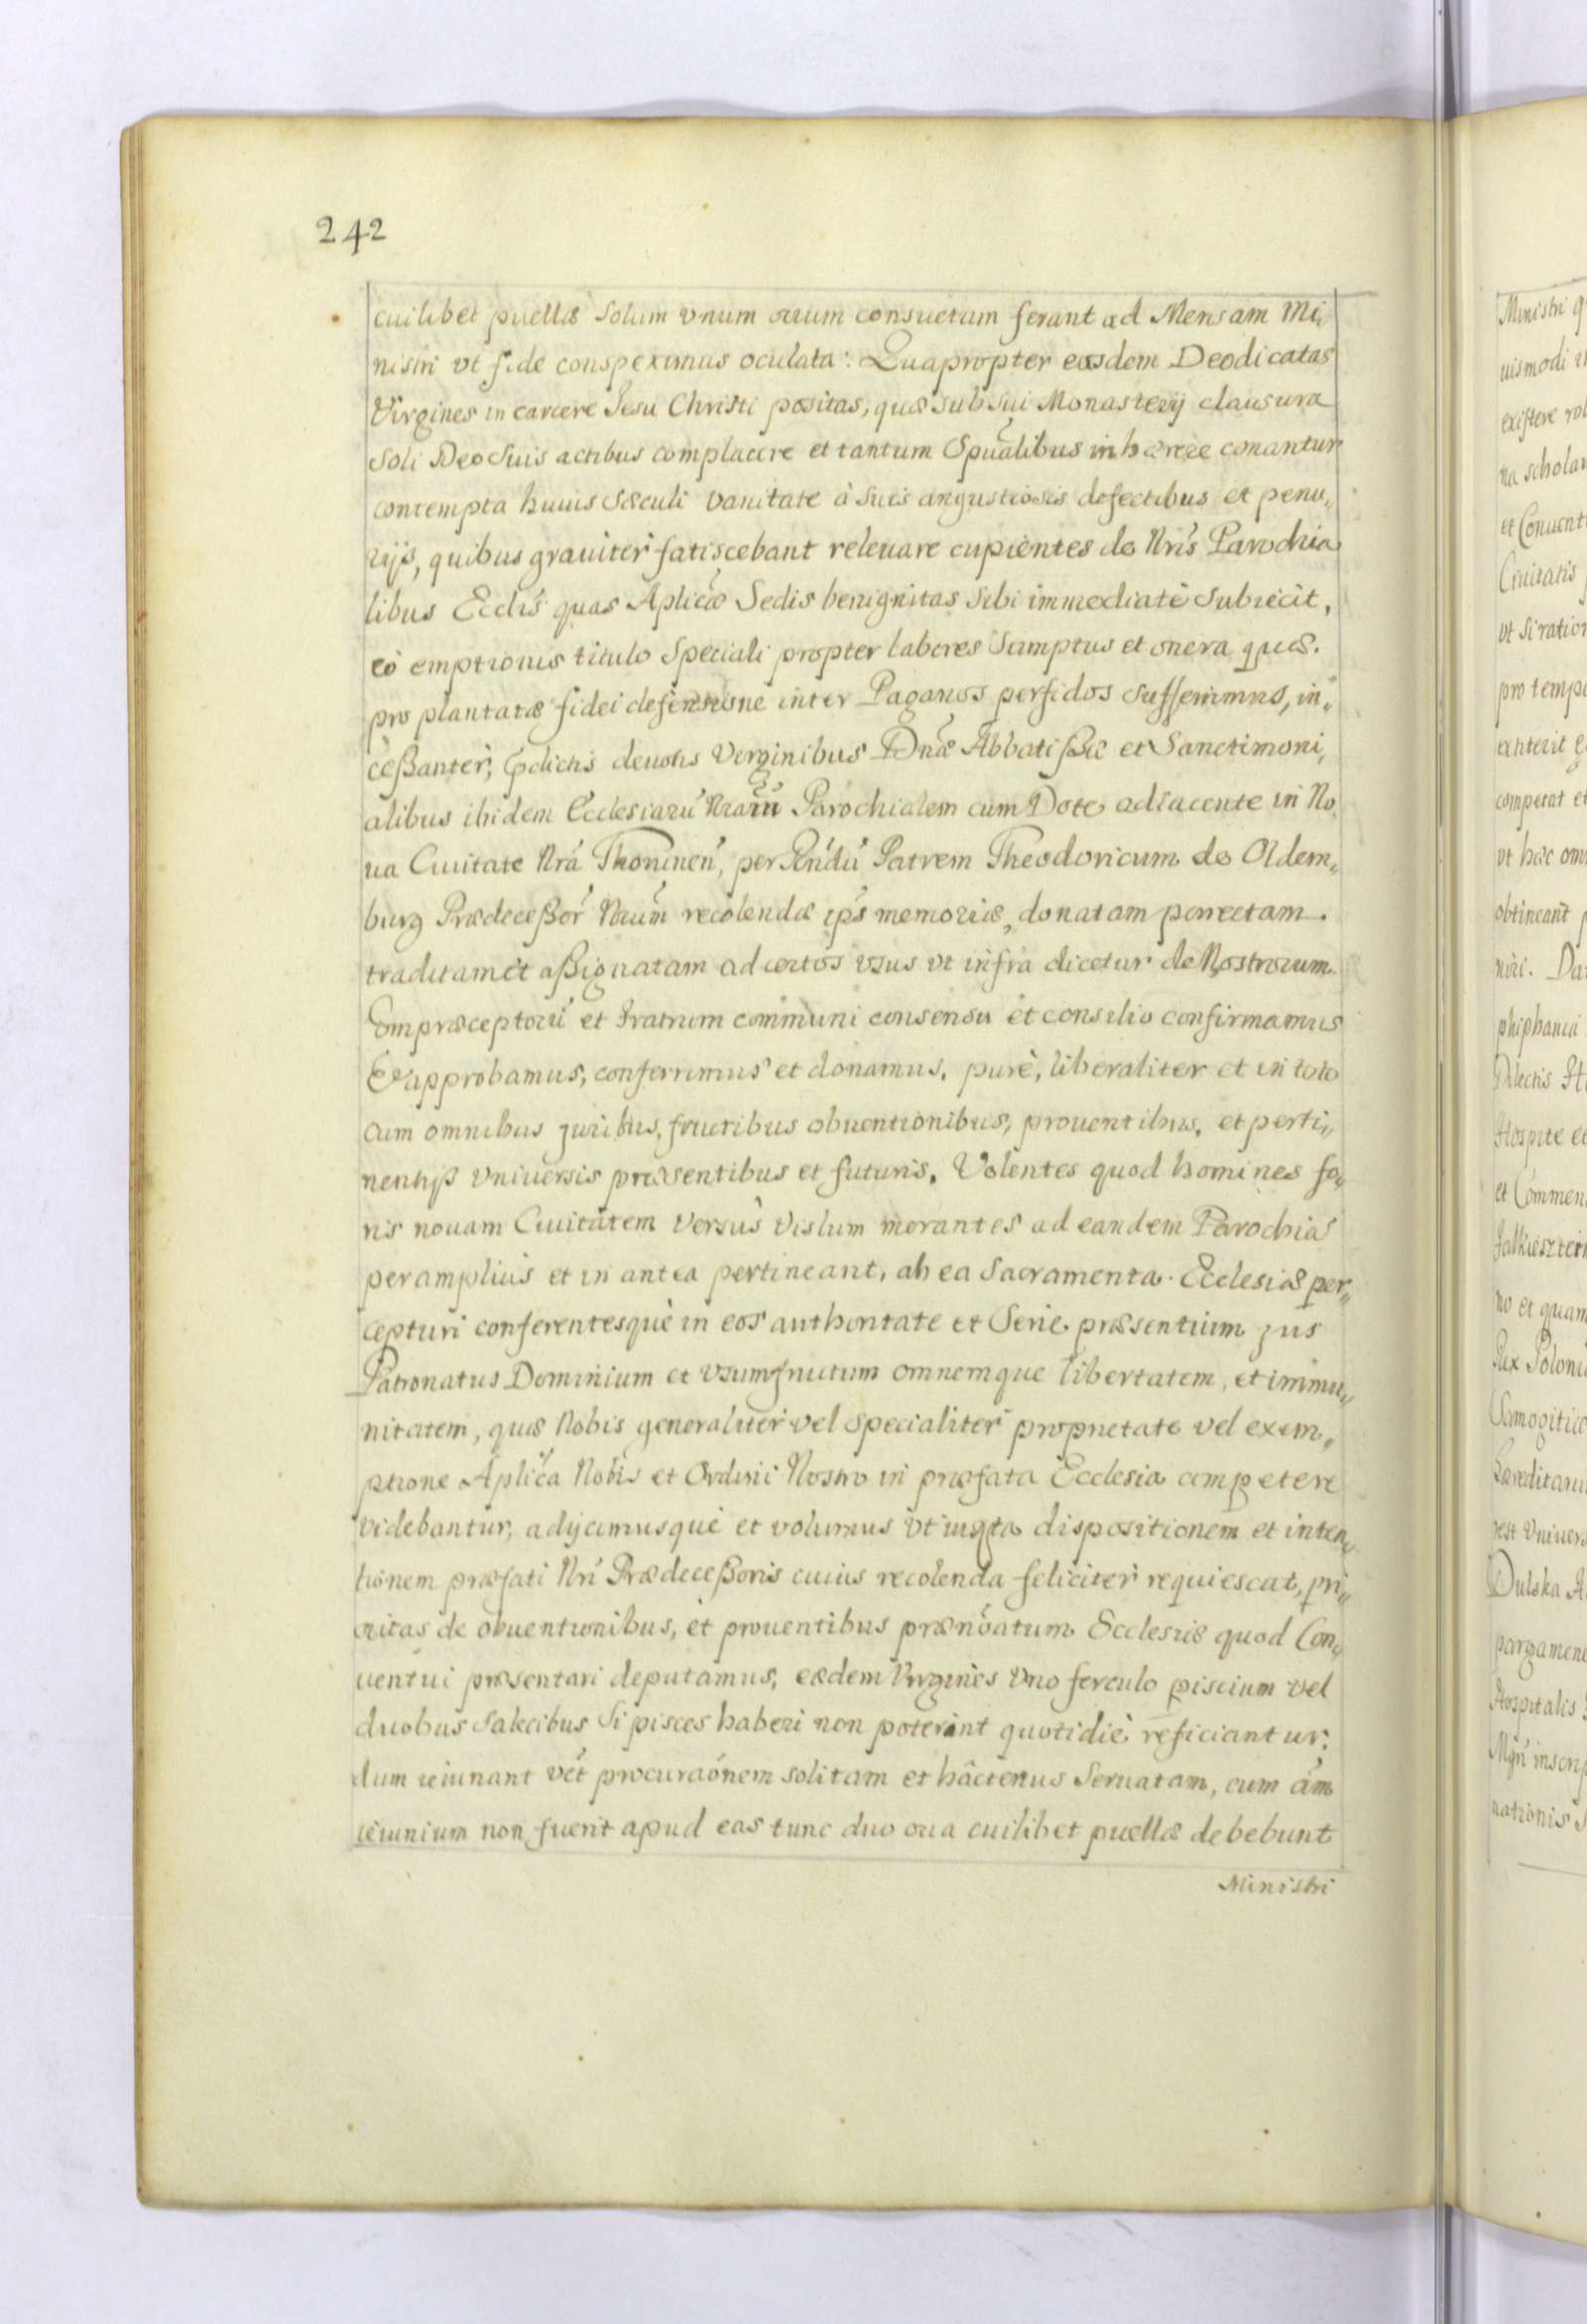 242
cuilibet puellæ solum vnum ouum consuetum ferant ad Mensam Mi,,
nistri vt fide conspeximus oculata: Quapropter easdem Deodicatas
Virgines in carcere Jesu Christi positas, quæ sub sui Monasterij clausura
soli Deo suis actibus complacere et tantum Spũalibus inhærere conantur
contempta huius sæculi vanitate à suis angustiosis defectibus et penu,,
rijs, quibus grauiter fatiscebant releuare cupientes de Nris Parochia
libus Ecclis quas Aplicæ Sedis benignitas sibi immediatè subiecit,
eò emptionis titulo speciali propter labores sumptus et onera quæ.
pro plantatæ fidei defensione inter Paganos perfidos sufferimus, in,,
ceßanter, Pdictis deuotis Virginibus Dnæ Abbatißæ et Sanctimoni,
alibus ibidem Ecclesiarũ Nrarũ Parochialem cum Dote adiacente in No,
ua Ciuitate Nrã Thoruneñ, per Rñdũ Patrem Theodoricum de Oldem,,
burg Prædeceßor Nrum recolendæ ips memoriæ, donatam porrectam.
traditam et aßignatam ad certos vsus vt infra dicetur de Nostrorum
Compræceptorũ et fratrum communi consensu et consilio confirmamus
Et approbamus, conferrimus et donamus, purè, liberaliter et in toto
cum omnibus juribus, fructibus obuentionibus, prouentibus, et perti,,
nentijs vniuersis præsentibus et futuris. Volentes quod homines fo,,
ris nouam Ciuitatem versus vislum morantes ad eandem Parochiã
per amplius et in antea pertineant, ab ea Sacramenta Ecclesiæ per,,
cepturi conferentesquè in eos authoritate et Serie præsentium jus
Patronatus Dominium et vsumfructum omnemque libertatem, et immu,,
nitatem, quæ Nobis generaliter vel specialiter proprietate vel exem,,
ptione Aplica Nobis et Ordini Nostro in præfata Ecclesia competere
videbantur, adijcimusquè et volumus vt iuxta dispositionem et inten,,
tionem præfati Nri Prædeceßoris cuius recolenda feliciter requiescat, pri,,
uitas de obuentionibus, et prouentibus prænoatum Ecclesiæ quod Con,,
uentui præsentari deputamus, eædem Virginès vno ferculo piscium vel
duobus salecibus si pisces haberi non poterint quotidiè reficiantur:
dum ieiunant vet procuraónem solitam et hâctenus seruatam, cum ám
ieiunium non fuerit apud eas tunc duo oua cuilibet puellæ debebunt
Ministri